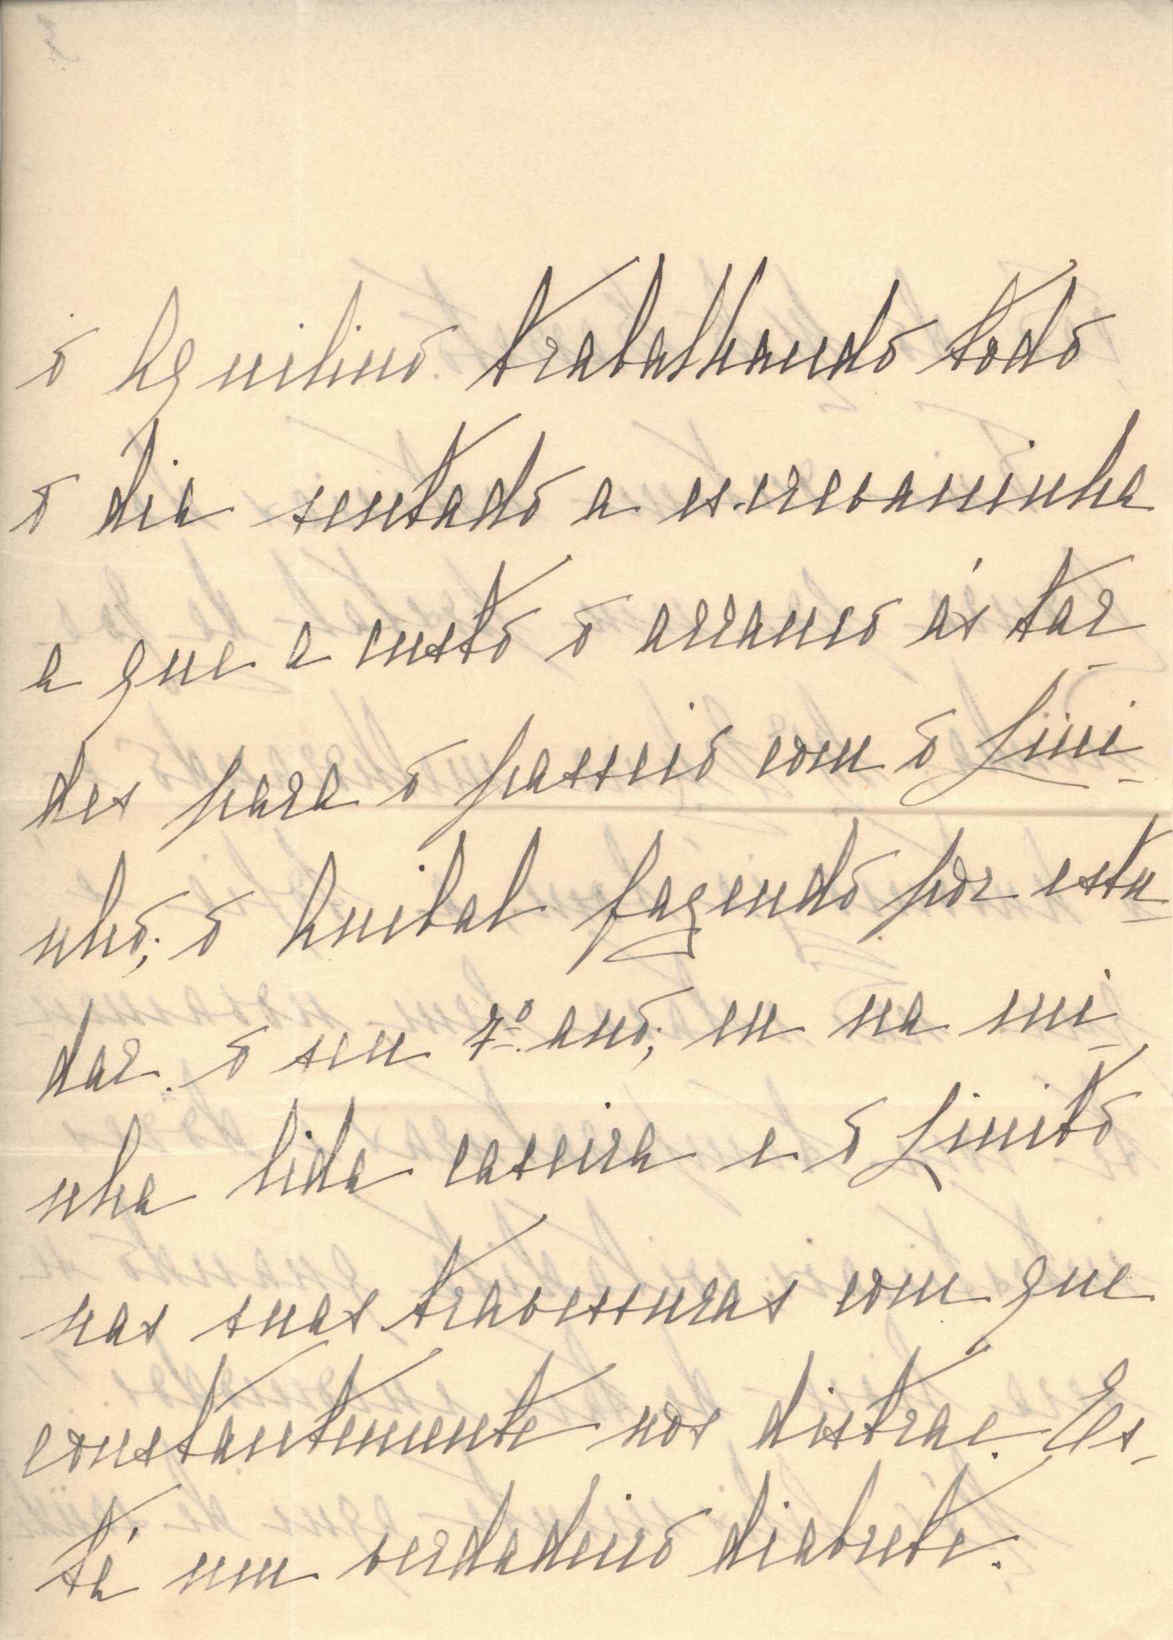 o Aquilino trabalhando todo
o dia sentado a escrevaninha
a que a custo o arranco ás tar
des para o passeio com o Lini-
nho; o Anibal fazendo por estu-
dar o seu 7º ano; eu na mi-
nha lida caseira e o Linito
nas suas travessuras com que
constantemente nos distrae. Es-
tá um verdadeiro diabrete.